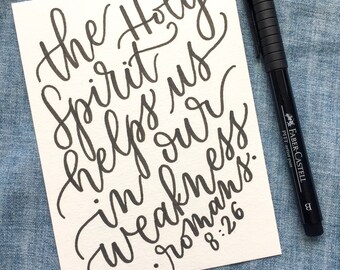 the Holy
Spirit
helps us
in our
weakness.
. romans.
8:26
FABER-CASTELL
PITT artist pen
B